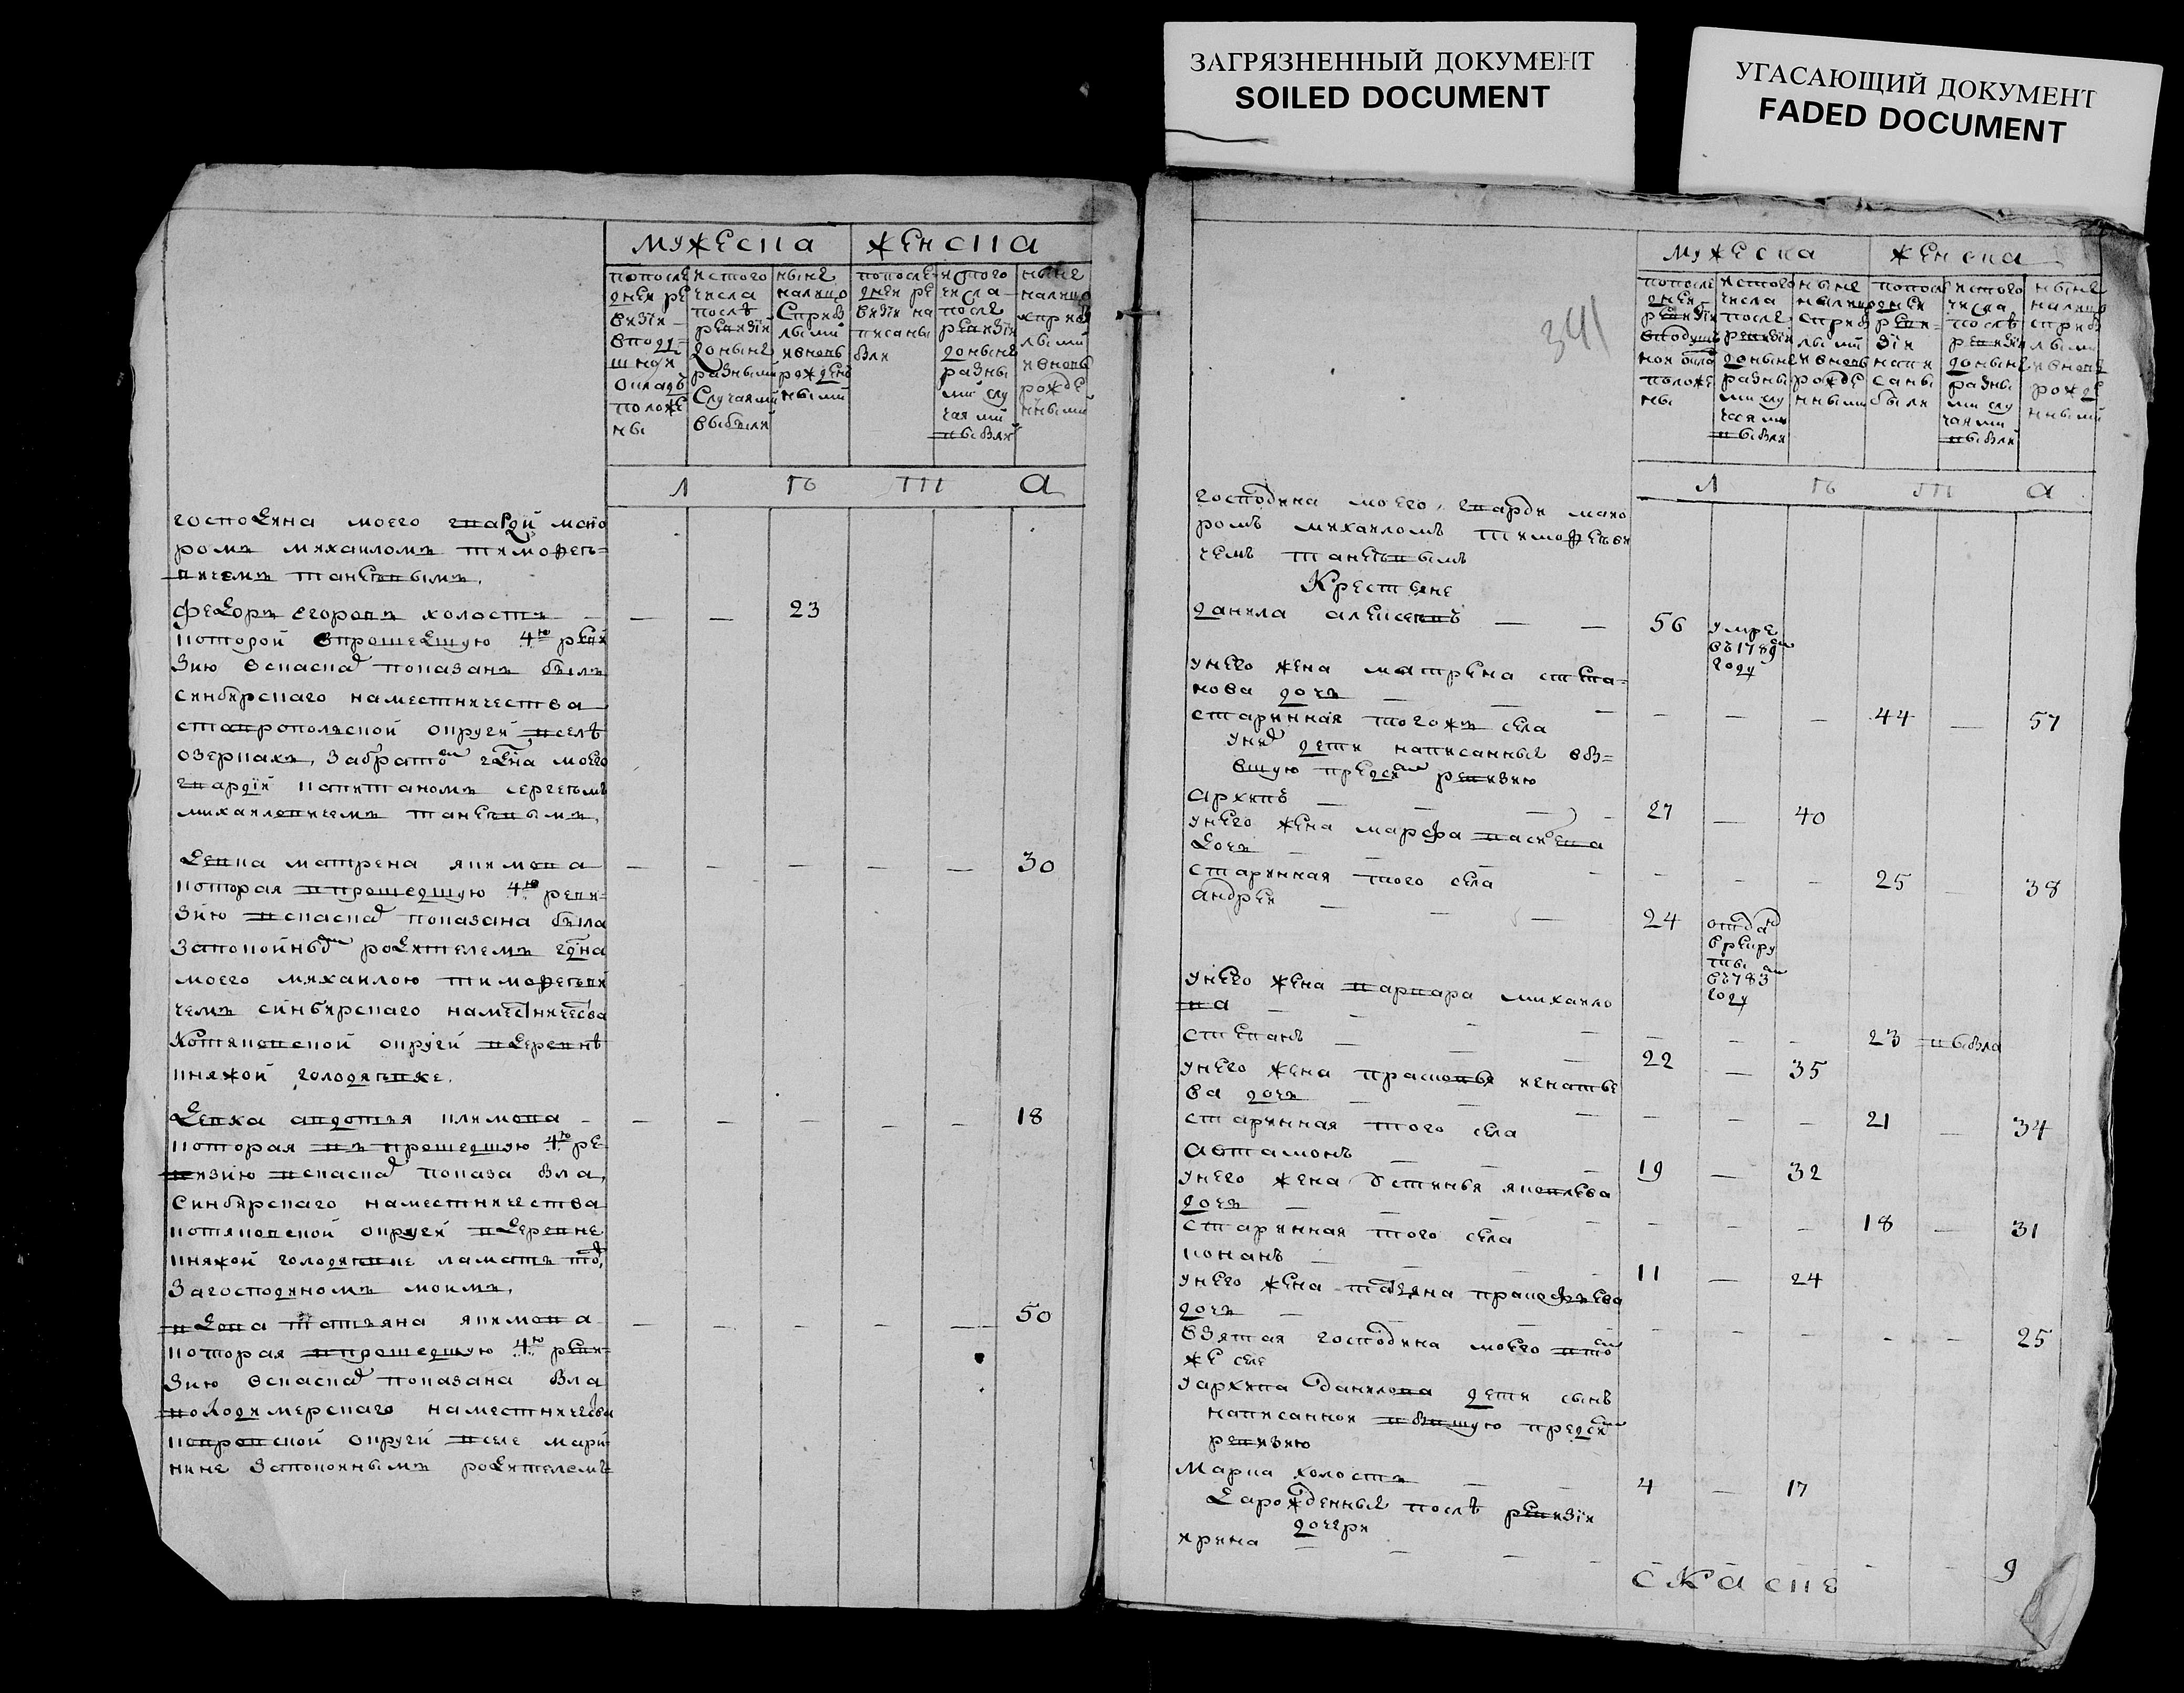 ЗАГРЯЗНЕННЫЙ ДОКУМЕНТ
SOILED DOCUMENT
УГАСАЮЩИЙ ДОКУМЕНТ
FADED DOCUMENT
мужеска женска
попоследней ревизии вподушной окладъ положены
истого числа послѣ ревизіи доныне разными случаями выбыли
ныне налицо сприбылыми ивновь рожденными
попоследней ревизіи написаны были
истого числа после ревизіи доныне разными случаями выбыли
ныне налицо сприбылыми ивновь рожденными
л ѣ т а
господина моего гвардіи маио
ромъ михаиломъ тимофеев=
вичемъ танеевымъ.
федоръ егоровъ холостъ — — — 23
которой впрошедшую 4ю реви
зию вскаскѣ показанъ былъ
синбирскаго наместничества
ставропольской округи вселѣ
озеркахъ, забратомъ гдна моего
гвардіи капитаномъ сергеемъ
михаиловичемъ танеевымъ,
девка матрена якимова — — — — — 30
которая впрошедшую 4ю реви=
зию вскаскѣ показана была
запокойнымъ родителемъ гдна
моего михаилою тимофееви
чемъ синбирскаго наместничества
котяковской округи вдеревнѣ
княжой голодяевке.
девка авдотья климова — — — — — — 18
которая въ прошедшую 4ю ре
визию вскаскѣ показа бла,
синбирскаго наместничества
котяковской округи вдеревне
княжой голодяевке
загосподиномъ моимъ,
вдова татьяна якимова — — — — — 50
которая впрошедшую 4ю реви=
зию вскаскѣ показана бла
володимерскаго наместничества
покровской округи вселе мари
нине запокоинымъ родителемъ
341
мужеска женска
попоследней ревизіи вподушной окладъ положены
истого числа после ревизіи доныне разными случаями выбли
ныне налицо сприбылыми ивновь рожденными
попоследней ревизіи написаны были
истого числа послѣ ревизіи доныне разными случаями выбли
ныне налицо сприбылыми ивновь рожденными
л ѣ т а
господина моего, гвардіи маио
ромъ михаиломъ тимофееви
чемъ танеевымъ
Крестьяне
данила алексеевъ — — 56 умре въ1789м году
унего жена матрена степа=
нова дочь — — — — — — 44 — 57
старинная тогожъ села
унихъ дети написанные вбв=
вшую предсимъ ревизию
архипъ — — — — 27 — 40
унего жена марфа васильева
дочь — — — — — — — 25 — 38
старинная того села
андрей — — — 24 отданъ врекруты въ783м году
унего жена варвара михаило
ва — — — — — — — 23 выбла
степанъ — — — 22 — 35
унего жена прасковья игнатье
ва дочь — — — — — — 21 — 34
старинная того села
автамонъ — — — 19 — 32
унего жена устинья яковлева
дочь — — — — — — 18 — 31
старинная того села
конанъ — — — — 11 — 24
унего жена татьяна пракофьева
дочь — — — — — — — — 25
взятая господина моего втомъ
же селе
уархипа данилова дети сынъ
написанной вбвшую предсимъ
ревизию
Марка холостъ — — 4 — 17
Дарожденные послѣ ревизіи
дочери
ирина — — — — — — 9
с к а ске